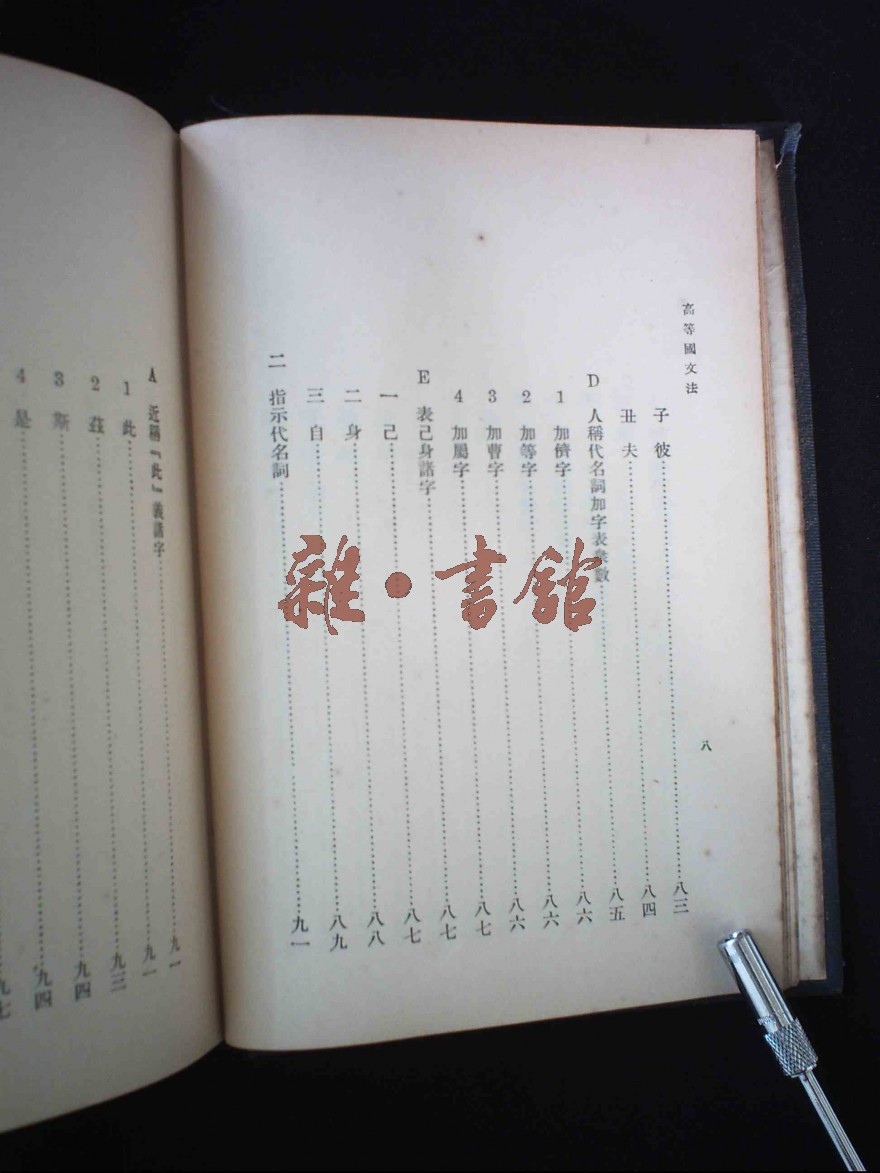 高等國文法
八
子 彼……八三
丑 夫……八四
D 人稱代名詞加字表衆數……八五
1 加儕字……八六
2 加等字……八六
3 加曹字……八六
4 加屬字……八七
E 表己身諸字……八七
一 己……八七
二 身……八八
三 自……八九
二 指示代名詞……九一
A 近稱『此』義諸字……九一
1 此……九一
2 茲……九三
3 斯……九四
4 是……九四
九七
雜·書館